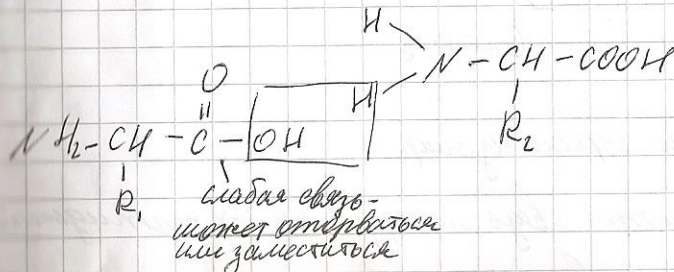 H
N - CH - COOH
H
R₂
O
NH₂ - CH - C - OH
R₁
слабая связь -
может оторваться
или заместиться